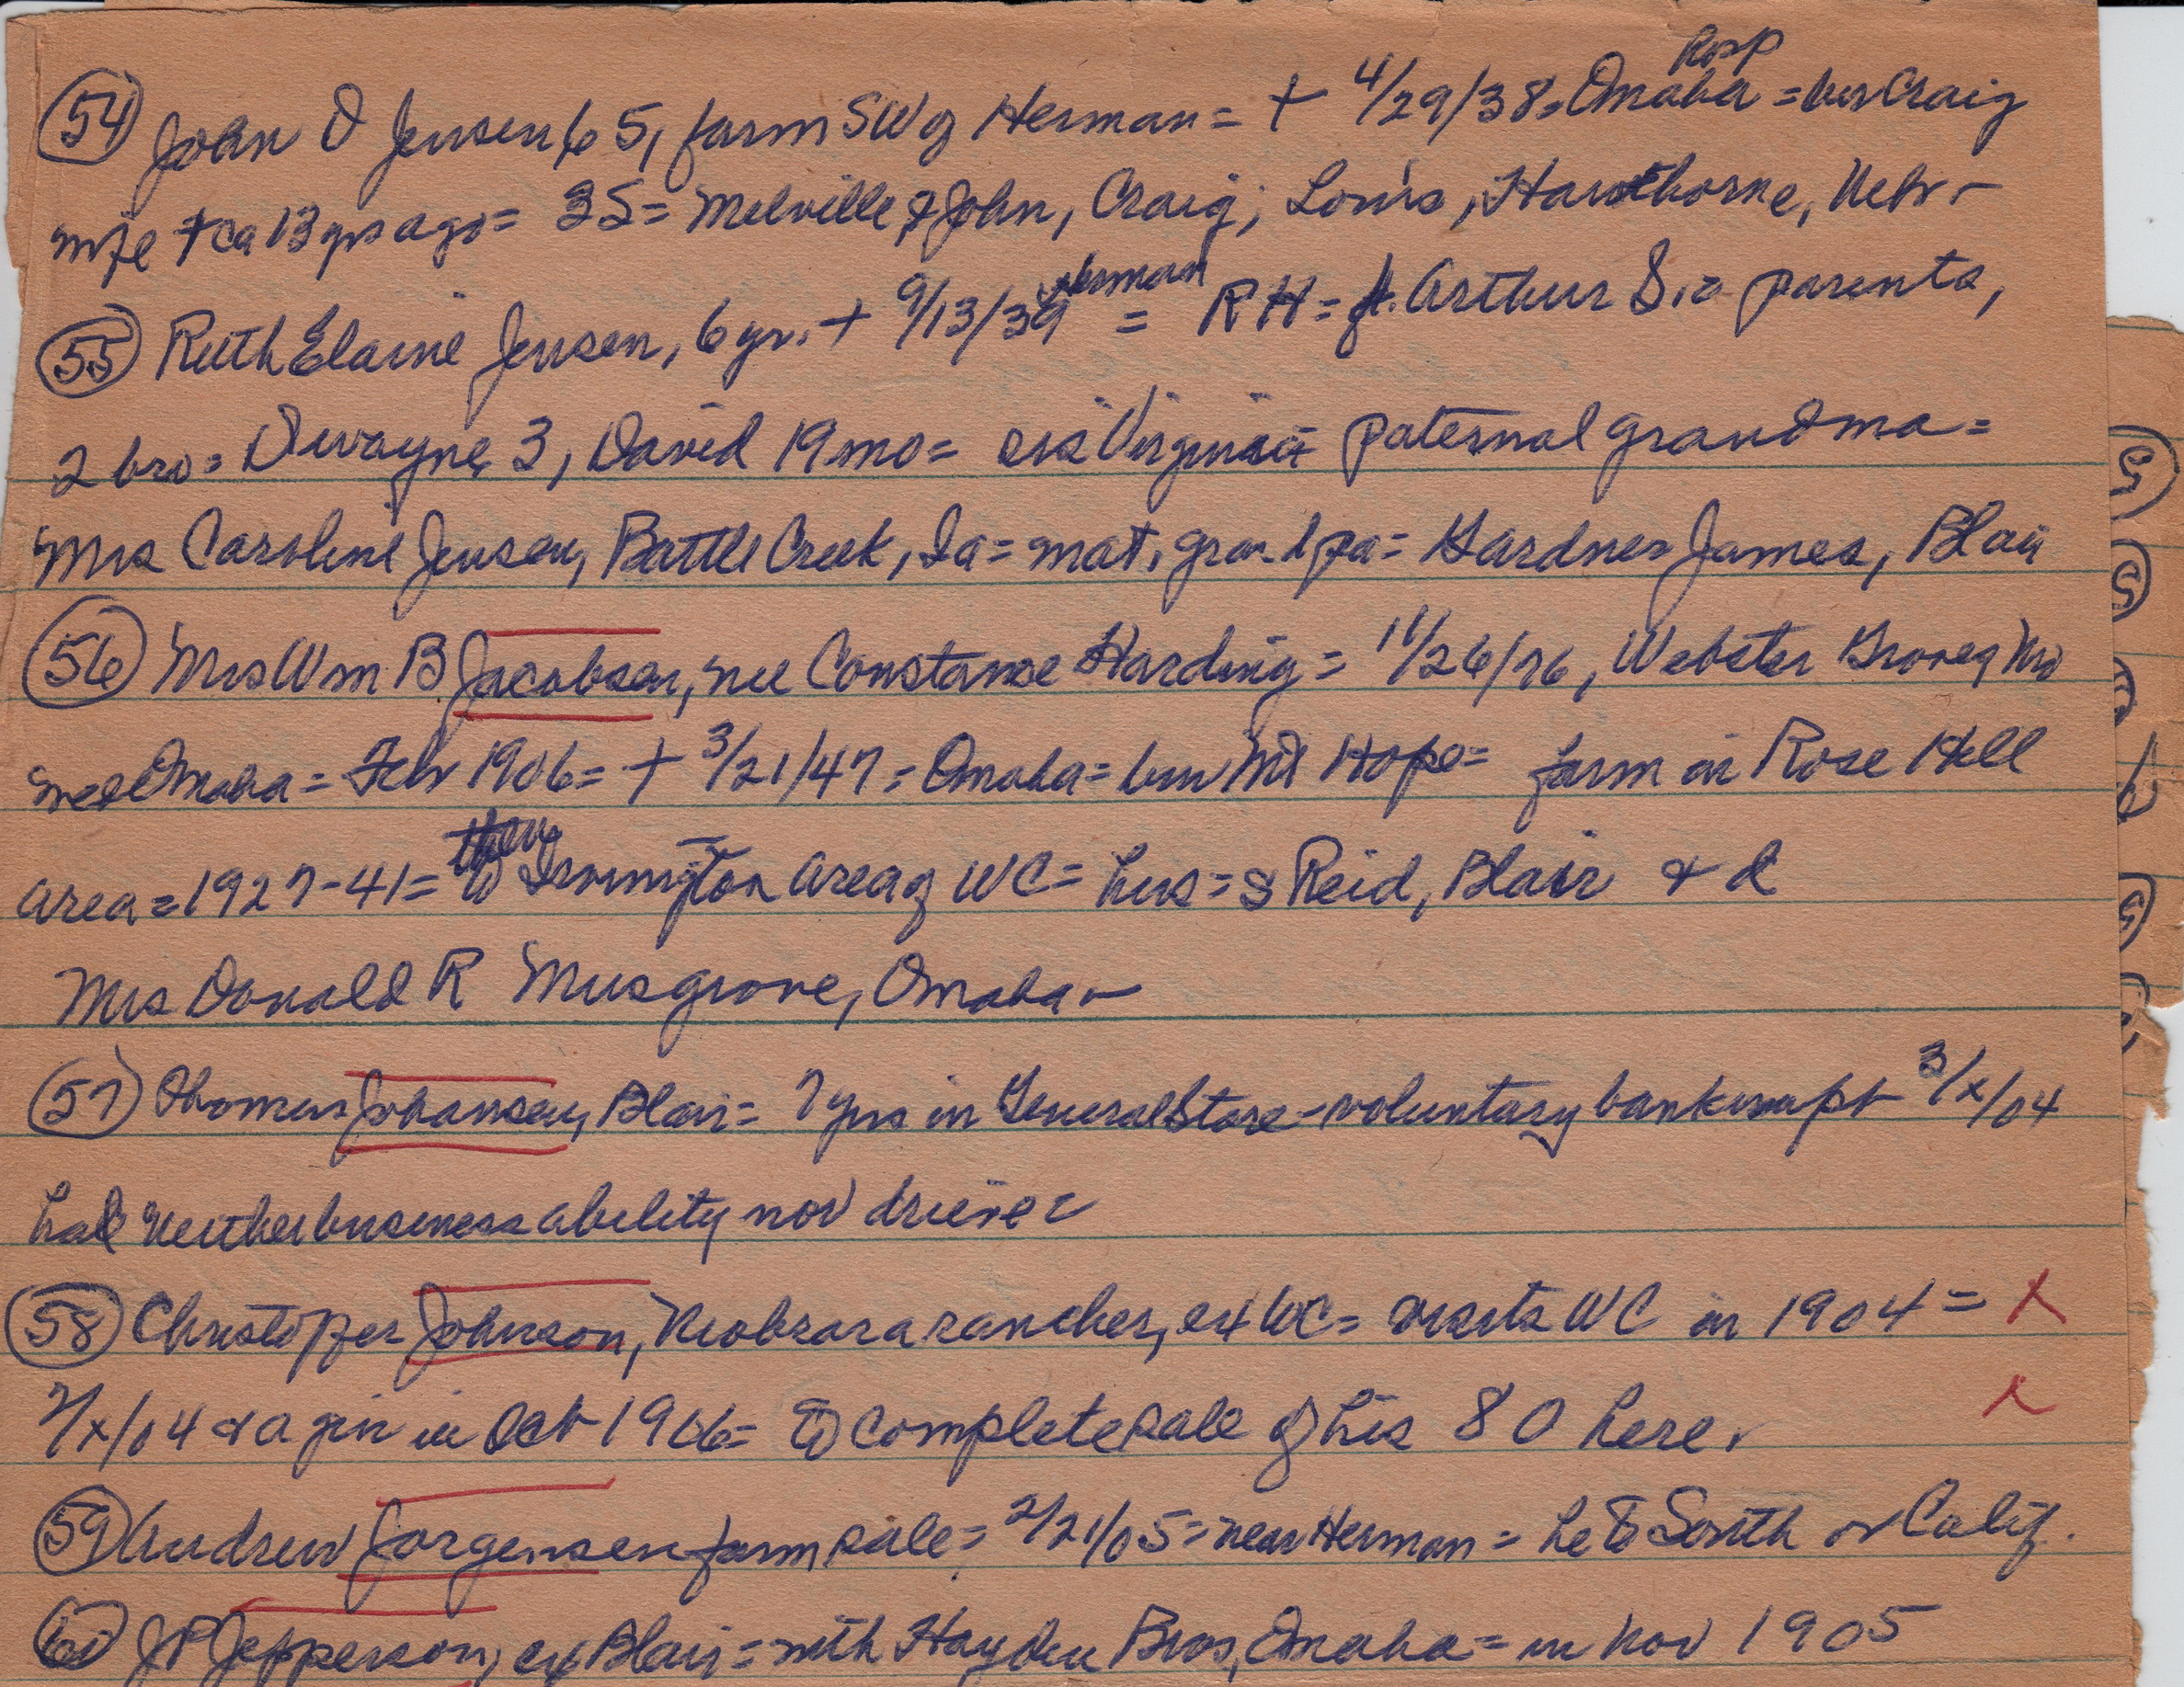 (54) John D Jensen, 65, farm SW of Herman = + 4/29/38 = Omaha Hosp = bur Craig
wife + ca 13 yrs ago = 3S = Melville & John, Craig; Louis, Hawthorne, Nebr -
(55) Ruth Elaine Jensen, 6 yr. + 9/13/39 Herman = RH = f. Arthur S. = parents,
2 bro = Dwayne 3, David 19 mo = sis Virginia = paternal grandma =
Mrs Caroline Jensen, Battle Creek, Ia = mat. grandpa = Gardner James, Blair
(56) Mrs Wm B Jacobsen, nee Constance Harding = 11/26/76, Webster Groves, Mo
wed Omaha = Febr 1906 = + 3/21/47 = Omaha = bur Mt Hope = farm in Rose Hill
area = 1927-41 = then to Irvington area of WC = hus = s Reid, Blair & d
Mrs Donald R Musgrove, Omaha -
(57) Thomas Johansen, Blair = 7 yrs in General Store - voluntary bankrupt 3/x/04
had neither business ability nor drive =
(58) Christoffer Johnson, Niobrara rancher, ex WC = visits WC in 1904 = x
7/x/04 & agin in Oct 1906 = to complete sale of his 80 here. x
(59) Andrew Jorgensen farm sale = 2/21/05 = near Herman = he to South or Calif.
(60) JP Jepperson, ex Blair = with Hayden Bros, Omaha = in Nov 1905